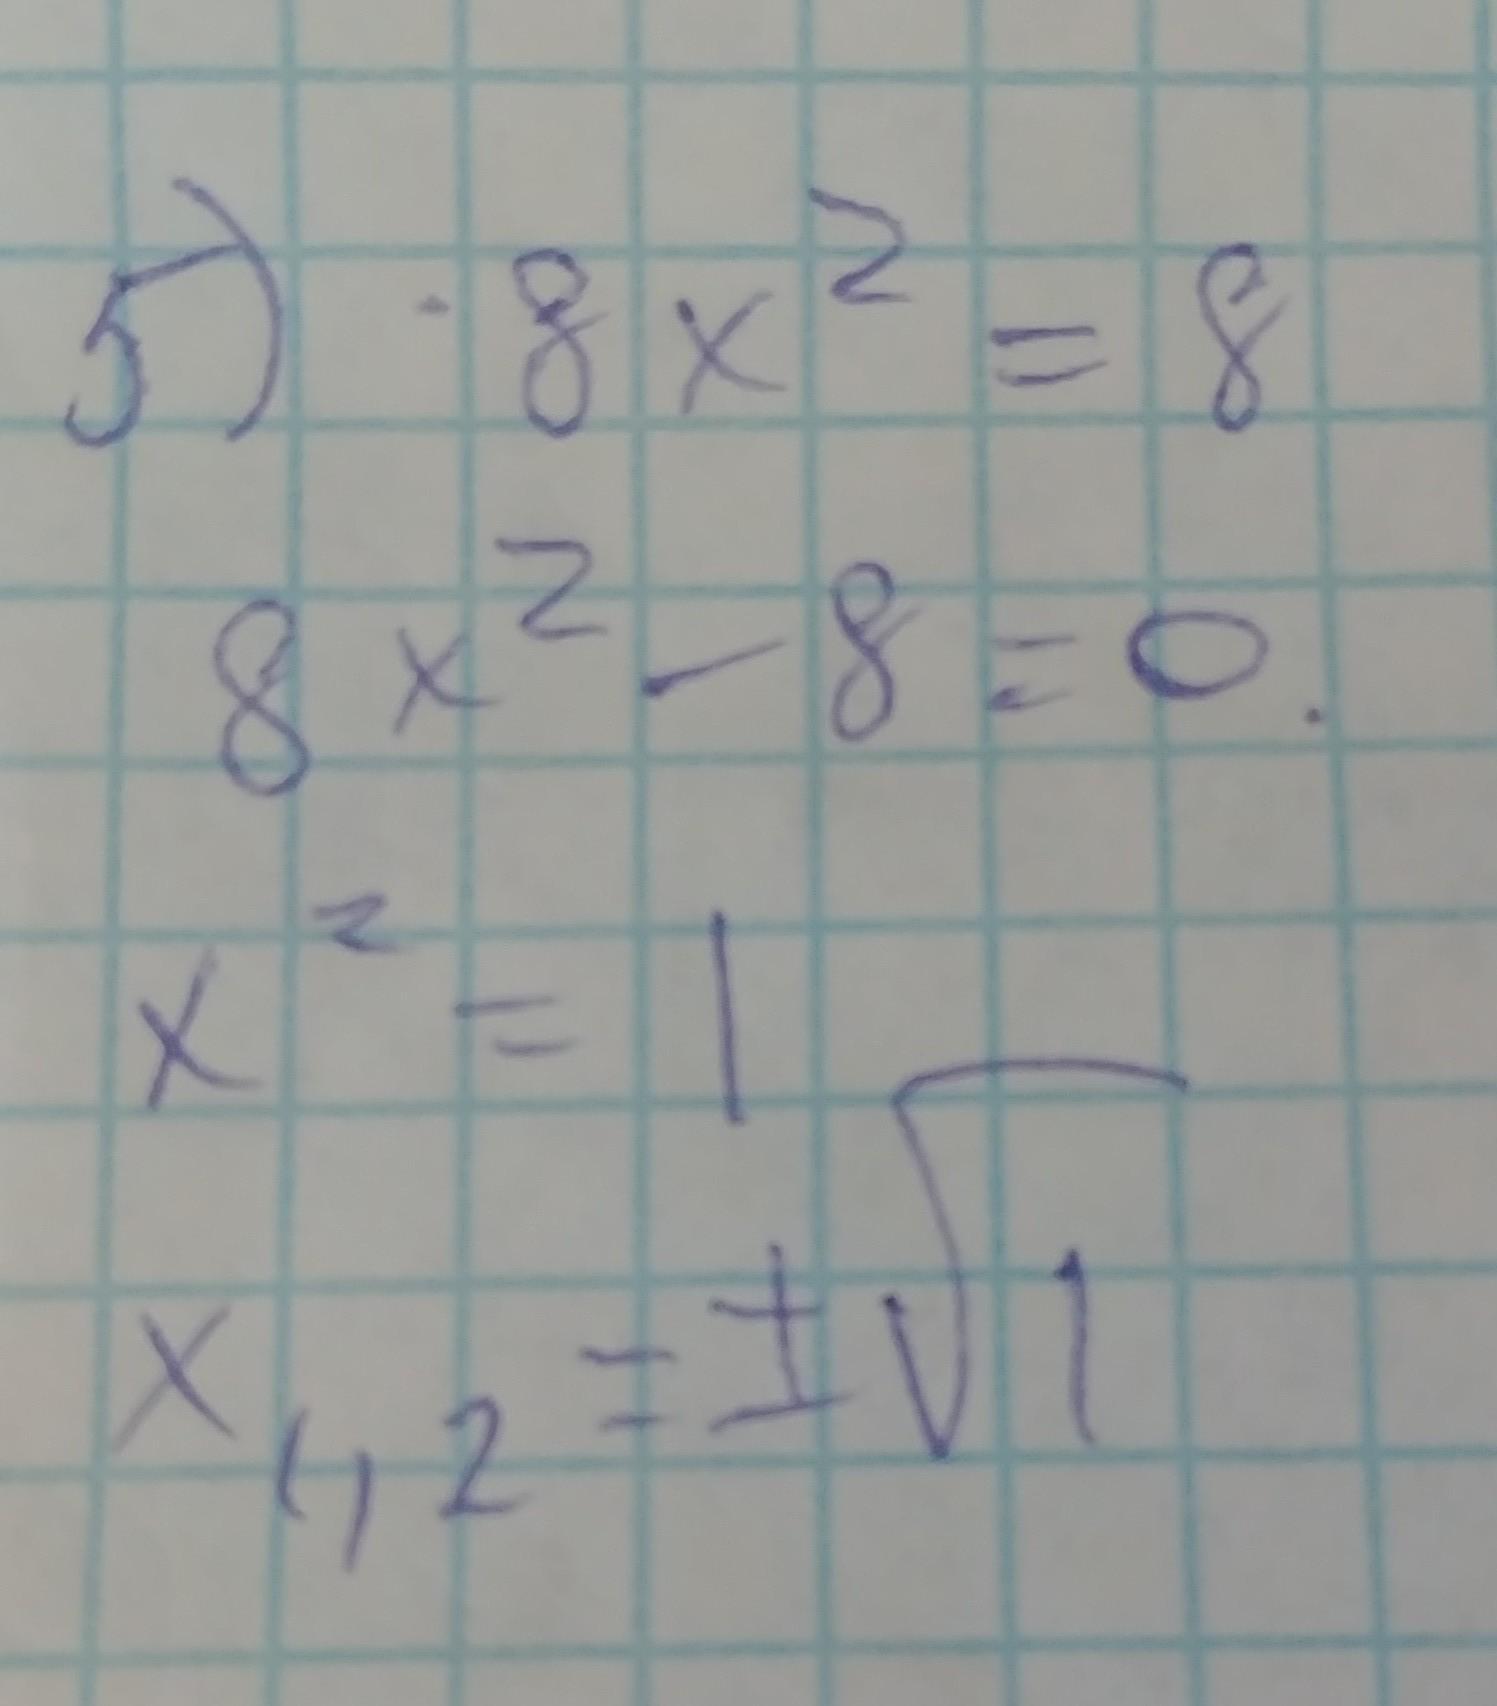 5) -8x² = 8
8x² - 8 = 0.
x² = 1
x₁,₂ = ±√1